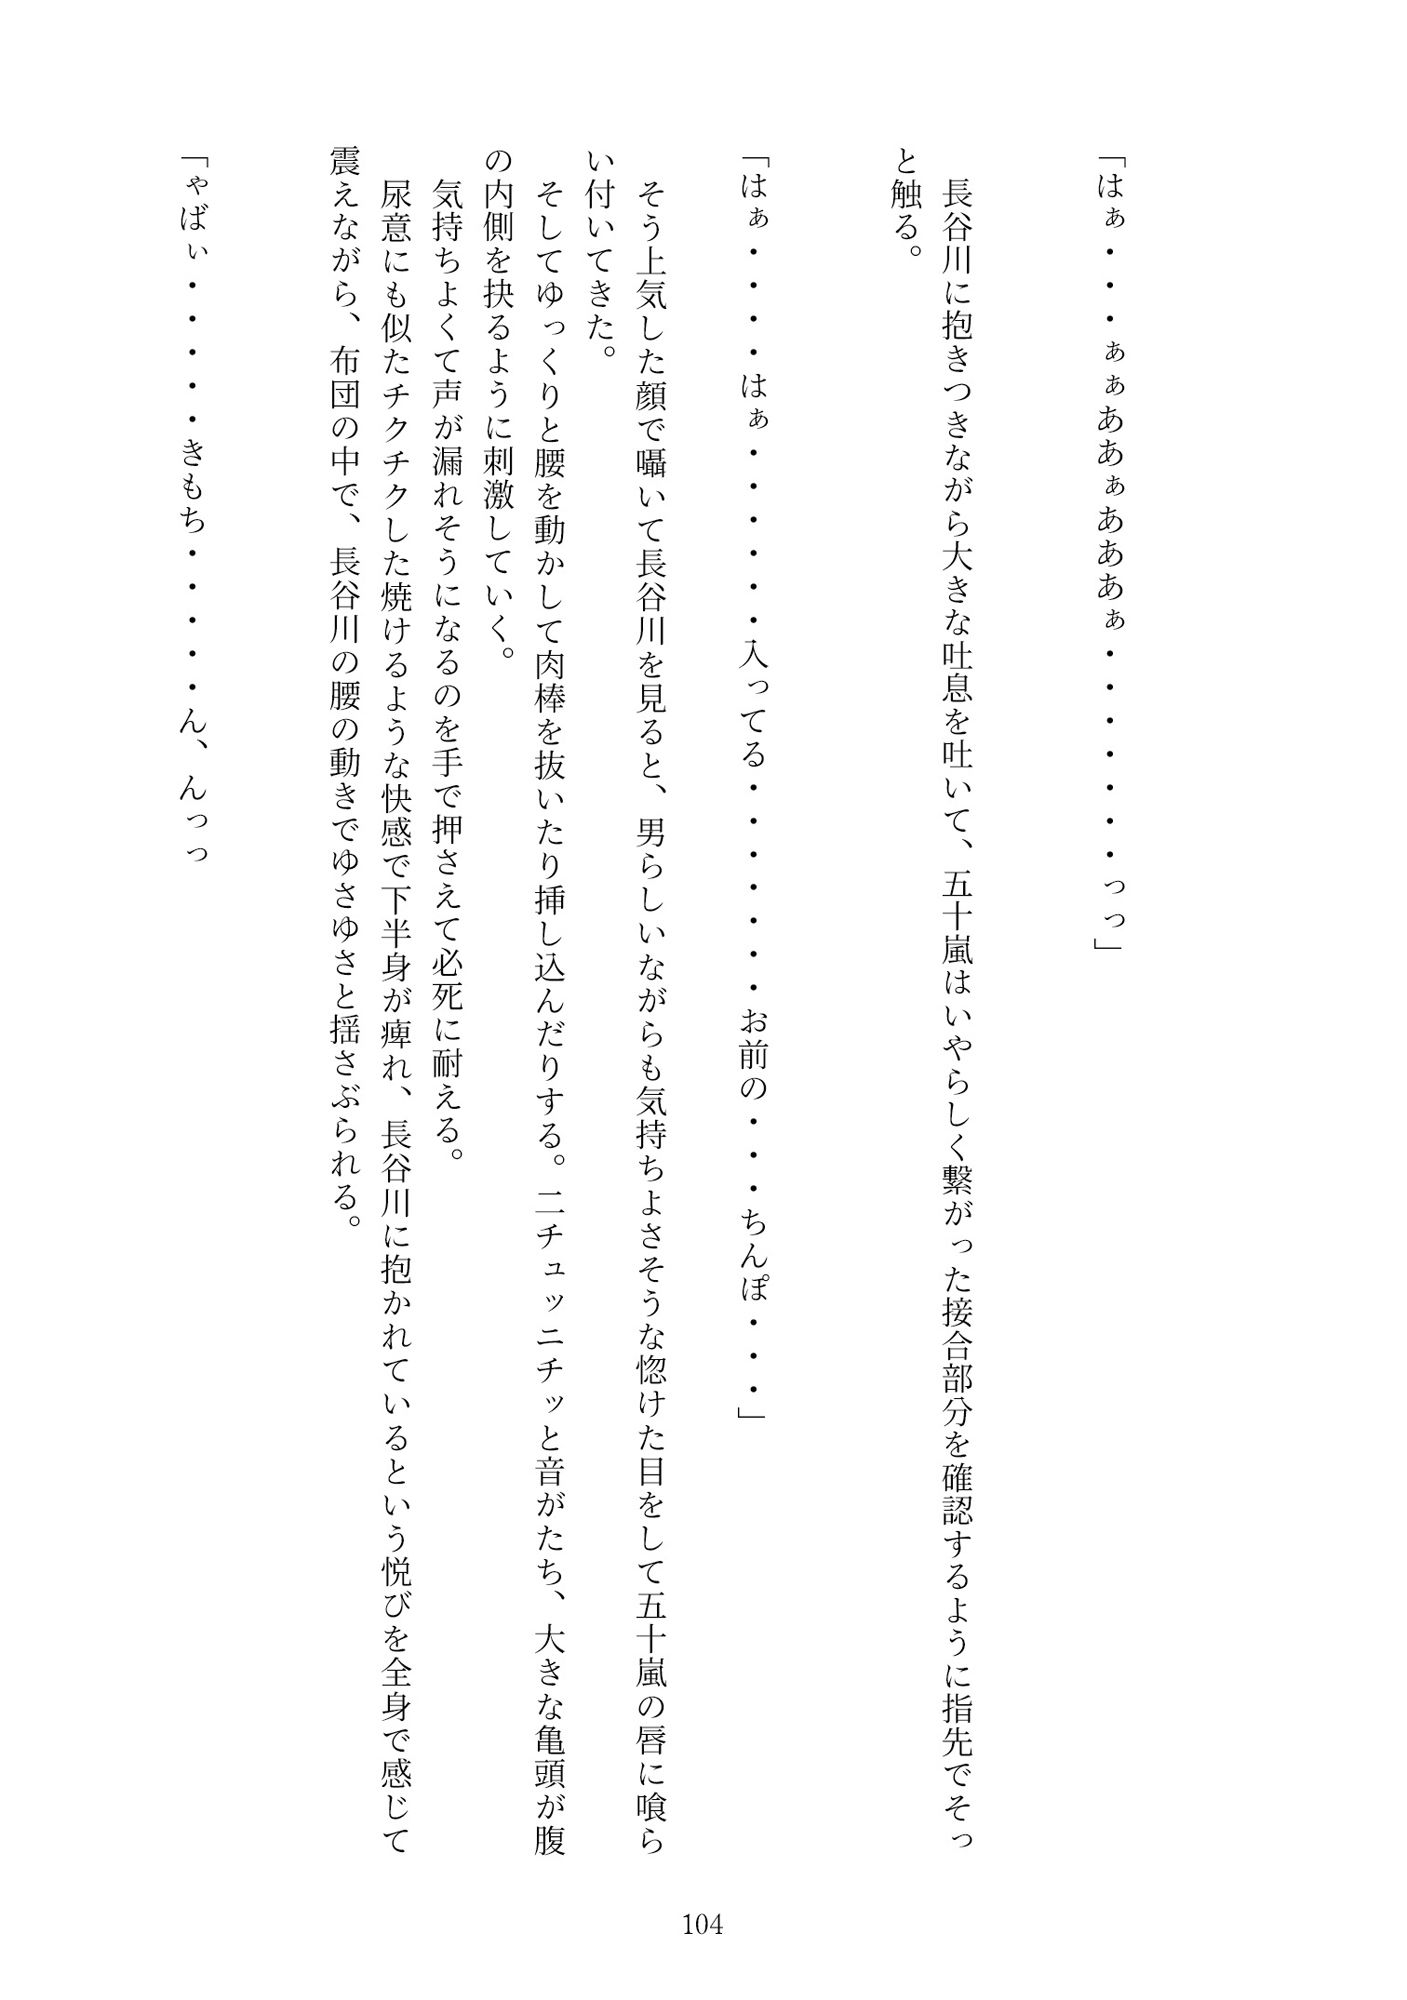 「はぁ・・・ぁぁああぁあああぁ・・・・・・・っっ」
　長谷川に抱きつきながら大きな吐息を吐いて、五十嵐はいやらしく繋がった接合部分を確認するように指先でそっ
と触る。
「はぁ・・・・はぁ・・・・・・入ってる・・・・・・・お前の・・・ちんぽ・・・」
　そう上気した顔で囁いて長谷川を見ると、男らしいながらも気持ちよさそうな惚けた目をして五十嵐の唇に喰ら
い付いてきた。
　そしてゆっくりと腰を動かして肉棒を抜いたり挿し込んだりする。二チュッニチッと音がたち、大きな亀頭が腹
の内側を抉るように刺激していく。
　気持ちよくて声が漏れそうになるのを手で押さえて必死に耐える。
　尿意にも似たチクチクした焼けるような快感で下半身が痺れ、長谷川に抱かれているという悦びを全身で感じて
震えながら、布団の中で、長谷川の腰の動きでゆさゆさと揺さぶられる。
「ゃばぃ・・・・・きもち・・・・・ん、んっっ
104